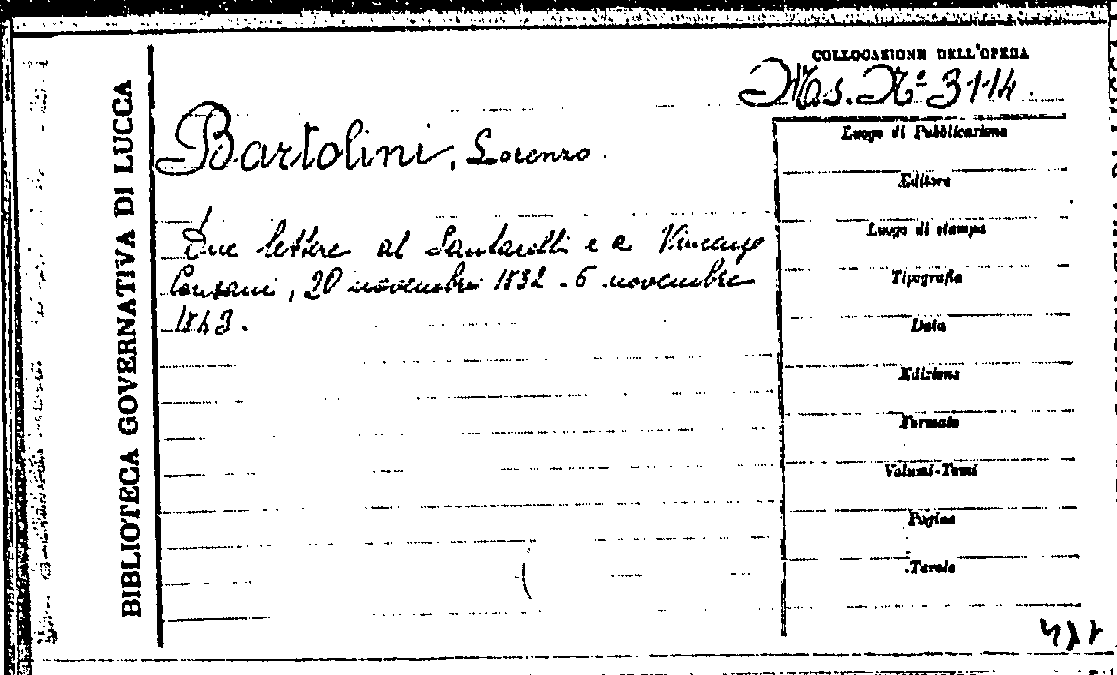 COLLOCAZIONE DELL'OPERA
Ms. Nº 3114.
BIBLIOTECA GOVERNATIVA DI LUCCA
Bartolini, Lorenzo.
Due lettere al Santarelli e a Vincenzo
Consani, 20 novembre 1832 - 6 novembre
1843.
Luogo di Pubblicazione
Editore
Luogo di stampa
Tipografia
Data
Edizione
Formato
Volumi-Tomi
Pagine
Tavole